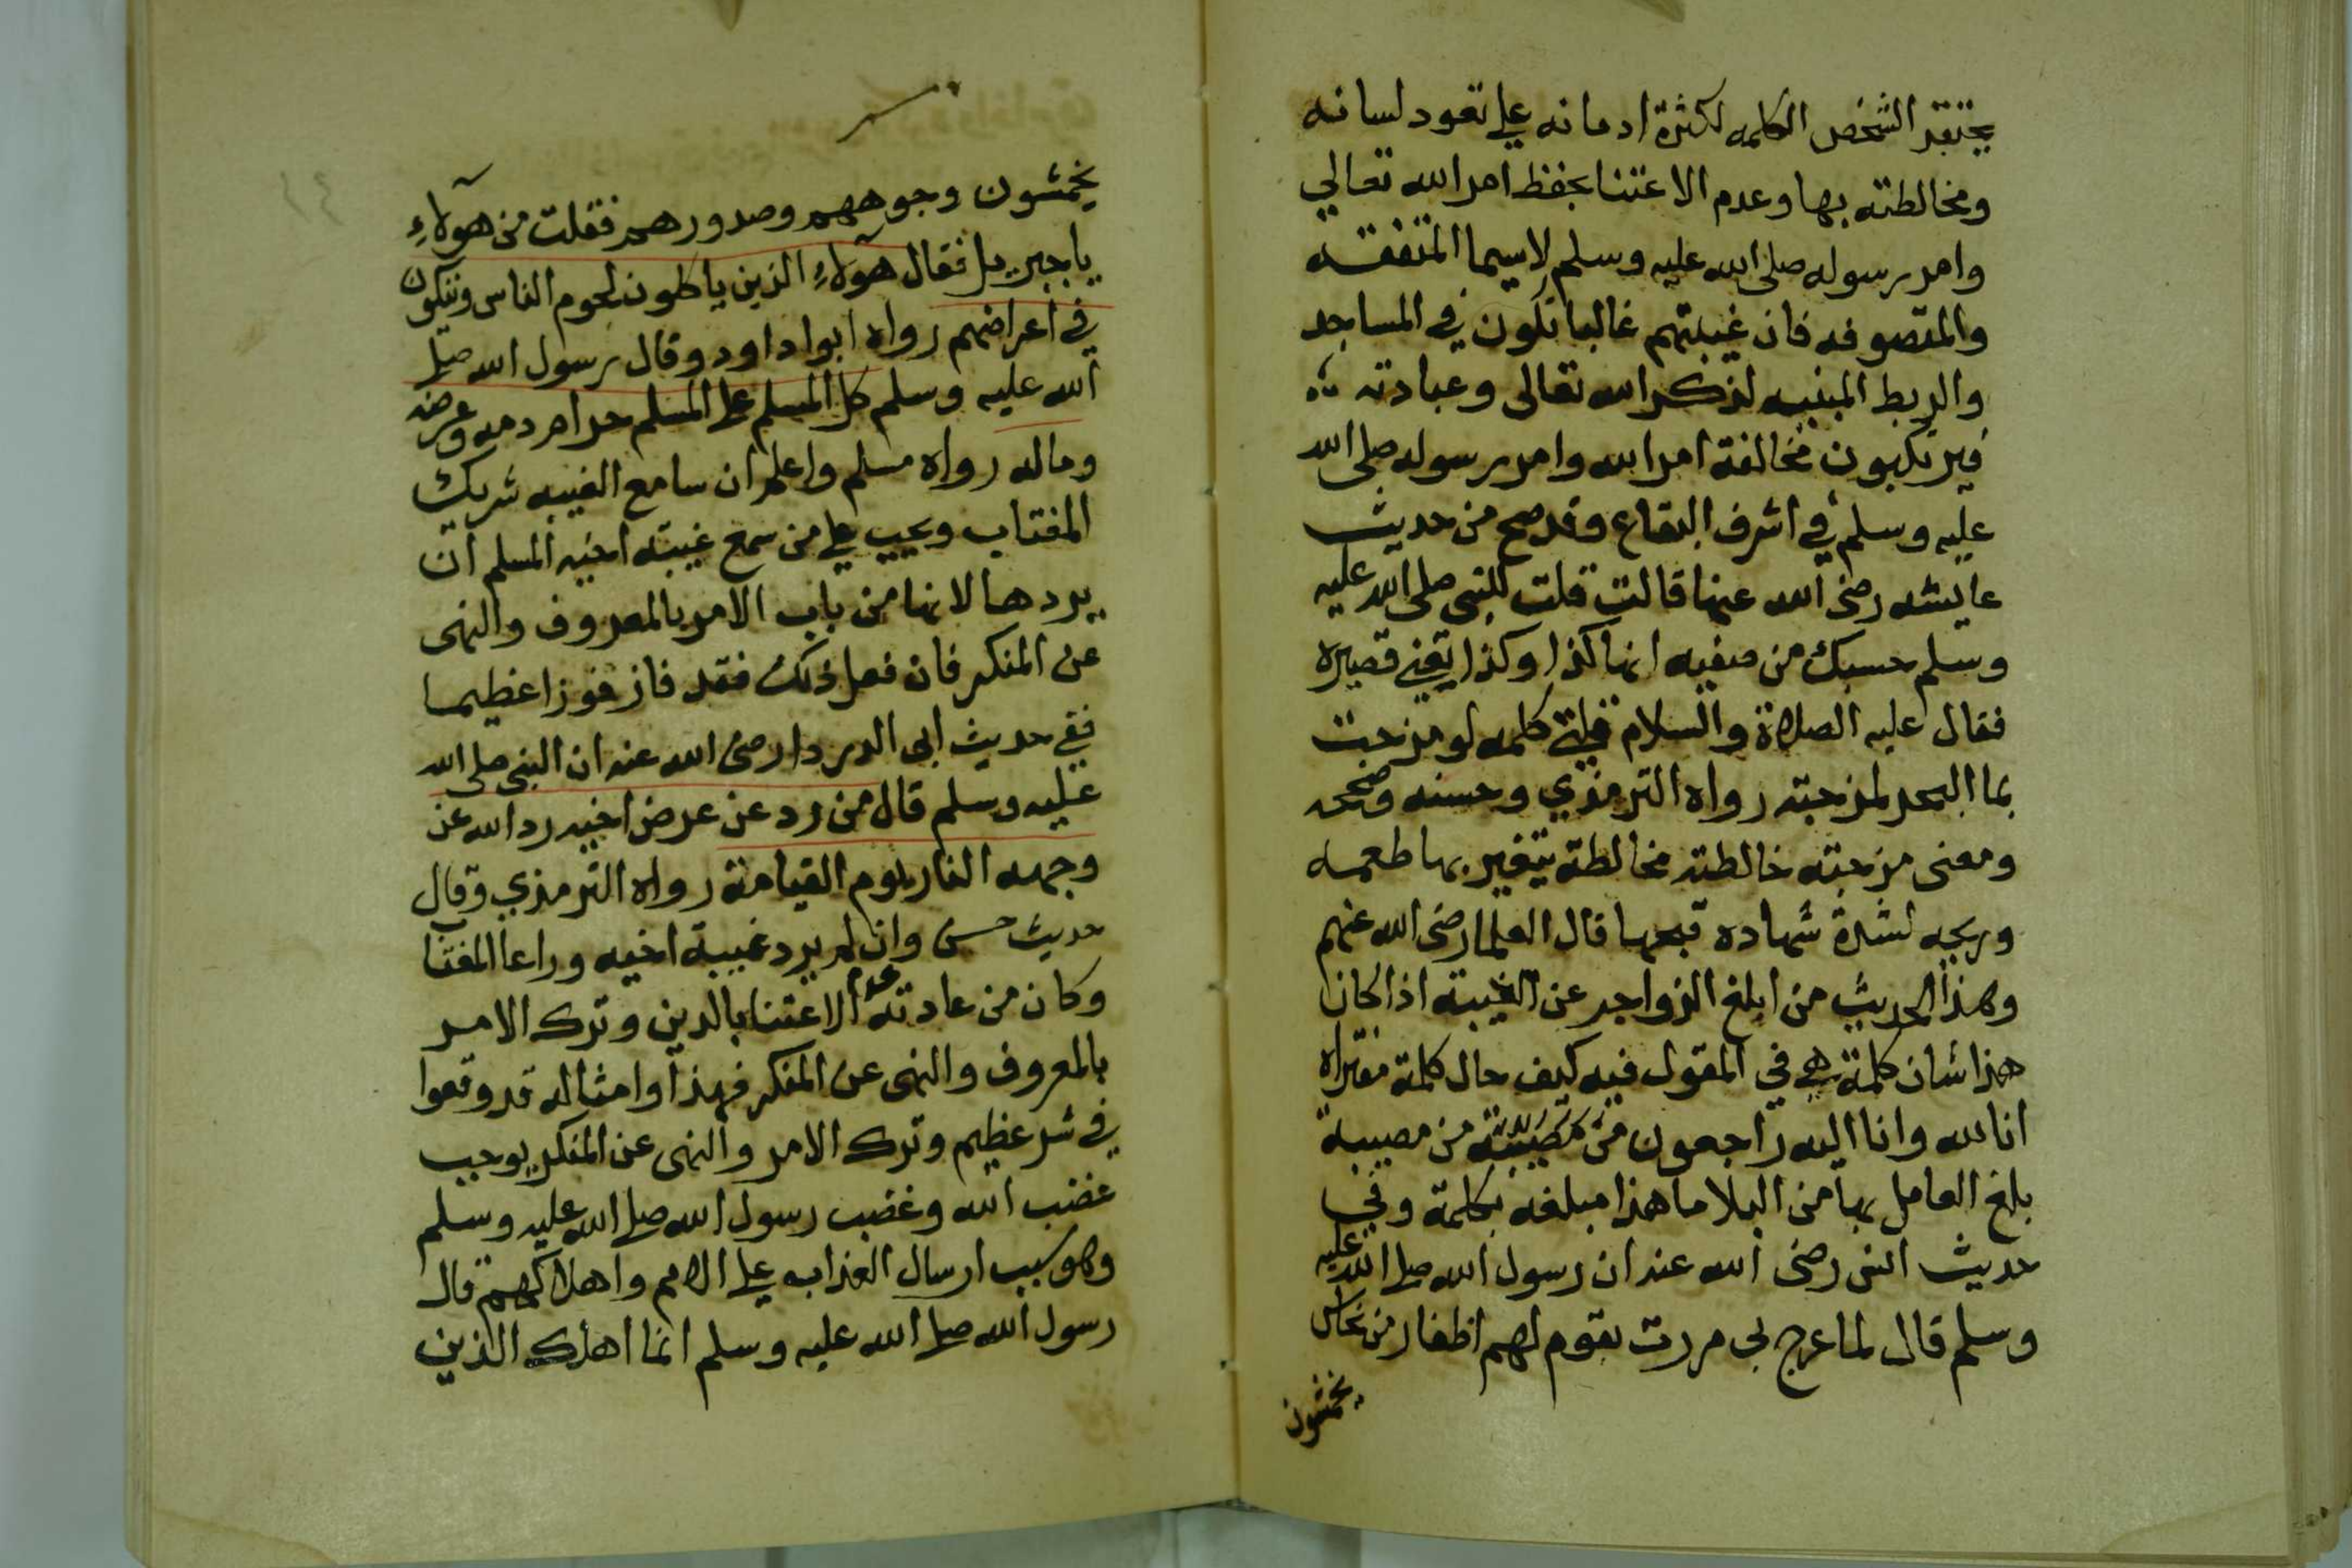 يحتقر الشخص الكلمه لكثرة ادمانه على تعود لسانه
ومخالطته بها وعدم الاعتنا بحفظ امر الله تعالي
وامر رسوله صلى الله عليه وسلم لاسيما المتفقه
والمتصوفه فان غيبتهم غالبا تكون في المساجد
والربط المبنيه لذكر الله تعالى وعبادته
فيرتكبون مخالفة امر الله وامر رسوله صلى الله
عليه وسلم في اشرف البقاع وقد صح من حديث
عايشه رضى الله عنها قالت قلت للنبى صلى الله عليه
وسلم حسبك من صفيه انها كذا وكذا يعني قصيره
فقال عليه الصلاة والسلام قلتي كلمه لو مزجت
بما البحر لمزجته رواه الترمذي وحسنه وصححه
ومعنى مزجته خالطته مخالطة يتغير بها طعمه
وريحه لشدة شهاده قبحها قال العلما رضى الله عنهم
وهذا الحديث من ابلغ الزواجر عن الغيبته اذا كان
هذا شان كلمة هي في المقول فيه كيف حال كلمة مفتراه
انا لله وانا اليه راجعون من مصيبة من مصيبة
بلغ العامل بها من البلا ما هذا مبلغه بكلمة وفي
حديث انس رضى الله عنه ان رسول الله صلى الله عليه
وسلم قال لما عرج بى مررت بقوم لهم اظفار من نحاس
يخمشون
يخمشون وجوههم وصدورهم فقلت من هولآءِ
ياجبريل فقال هولآءِ الذين ياكلون لحوم الناس ويتكلون
في اعراضهم رواه ابوا داود وقال رسول الله صلى
الله عليه وسلم كل المسلم على المسلم حرام دمه وعرضه
وماله رواه مسلم واعلم ان سامع الغيبه شريك
المغتاب ويجب على من سمع غيبته اخيه المسلم ان
يردها لانها من باب الامر بالمعروف والنهى
عن المنكر فان فعل ذلك فقد فاز فوزا عظيما
ففي حديث ابى الدردا رضى الله عنه ان النبى صلى الله
عليه وسلم قال من رد عن عرض اخيه رد الله عن
وجهه النار يوم القيامة رواه الترمذي وقال
حديث حسن وان لم يرد غيبة اخيه وراعا المغتاب
وكان من عادته عدم الاعتنا بالدين وترك الامر
بالمعروف والنهى عن المنكر فهذا وامثاله قد وقعوا
في شر عظيم وترك الامر والنهى عن المنكر يوجب
غضب الله وغضب رسول الله صلى الله عليه وسلم
وهو سبب ارسال العذاب على الامم واهلاكهم قال
رسول الله صلى الله عليه وسلم انما اهلك الذين